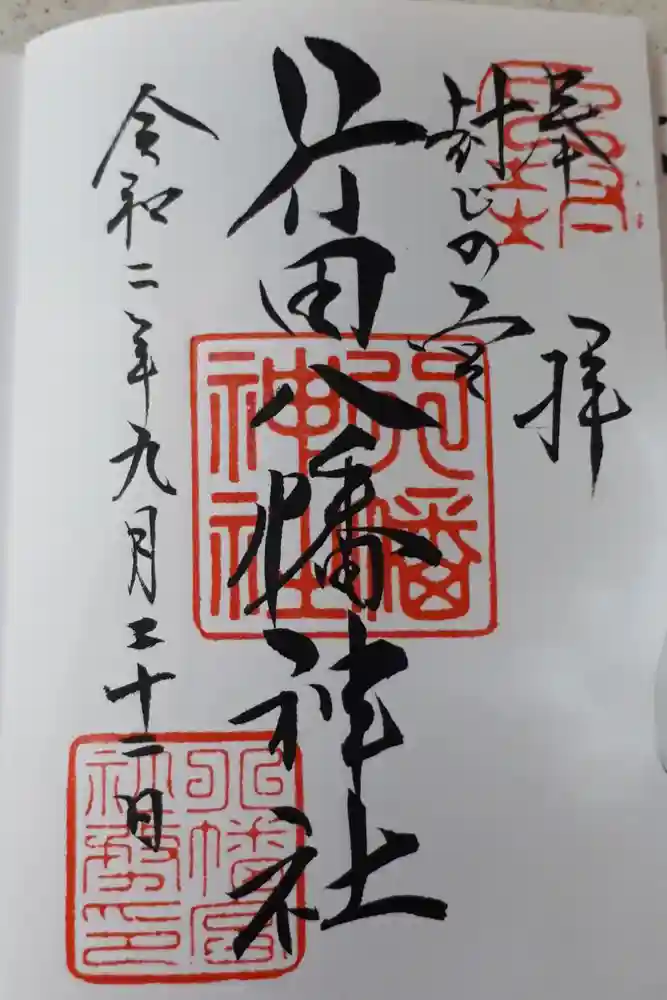 奉拝
封じの宮
行田八幡神社
令和二年九月二十二日
八幡
神社
八幡宮
社務印